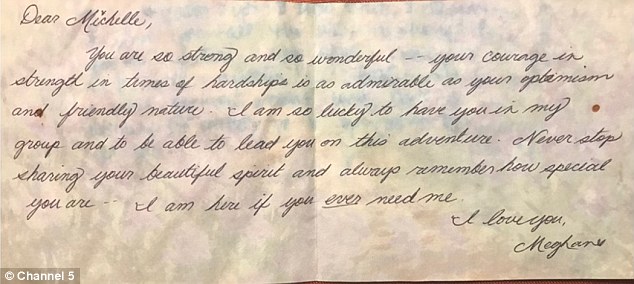 Dear Michelle,
You are so strong and so wonderful -- your courage in
strength in times of hardships is as admirable as your optimism
and friendly nature. I am so lucky to have you in my
group and to be able to lead you on this adventure. Never stop
sharing your beautiful spirit and always remember how special
you are -- I am here if you ever need me.
I love you,
Meghan
© Channel 5